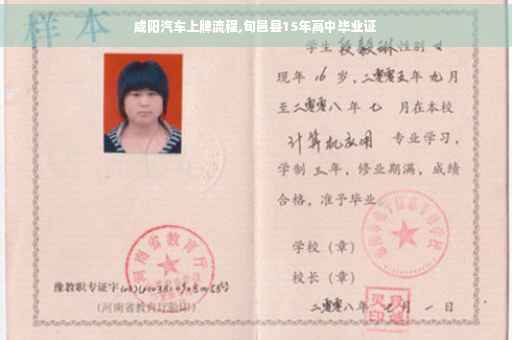 咸阳汽车上牌流程,旬邑县15年高中毕业证
样本
学生段毅琳性别女
现年16岁，二零零五年九月
至二零零八年七月在本校
计算机应用 专业学习，
学制三年，修业期满，成绩
合格，准予毕业。
学校（章）
校长（章）
二零零八年 月一日
河南省教育厅
豫教职专证字
（河南省教育厅验印）